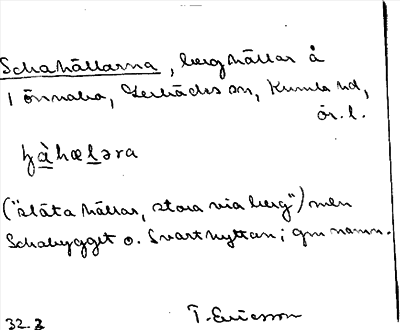 Schahällarna, berghällar å
1 Önnabo, Lerbäcks sn, Kumla hd,
ör. l.
ʃàhæləra
("släta hällar, stora via berg") men
Schabygget o. Svarthyttan; gm namn.
32.2 T. Ericsson